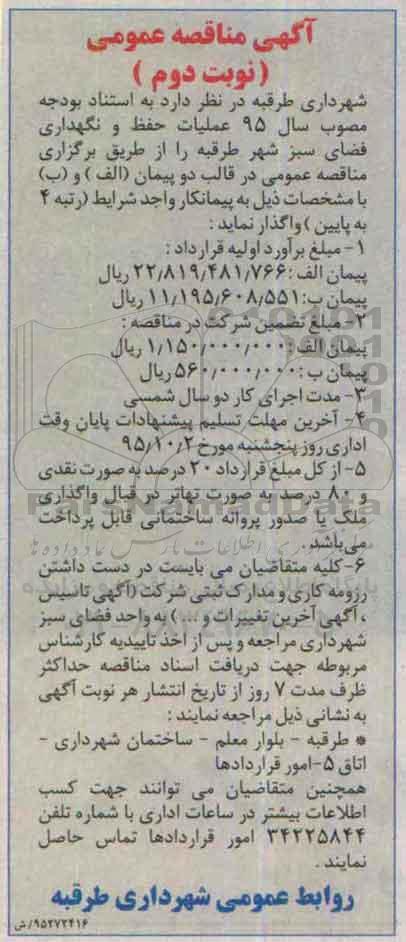 آگهی مناقصه عمومی
( نوبت دوم )
شهرداری طرقبه در نظر دارد به استناد بودجه
مصوب سال ۹۵ عملیات حفظ و نگهداری
فضای سبز شهر طرقبه را از طریق برگزاری
مناقصه عمومی در قالب دو پیمان (الف ) و (ب)
با مشخصات ذیل به پیمانکار واجد شرایط (رتبه ۴
به پایین ) واگذار نماید :
۱- مبلغ برآورد اولیه قرارداد :
پیمان الف : ۲۲/۸۱۹/۴۸۱/۷۶۶ ریال
پیمان ب: ۱۱/۱۹۵/۶۰۸/۵۵۱ ریال
۲- مبلغ تضمین شرکت در مناقصه :
پیمان الف : ۱/۱۵۰/۰۰۰/۰۰۰ ریال
پیمان ب : ۵۶۰/۰۰۰/۰۰۰ ریال
۳- مدت اجرای کار دو سال شمسی
۴- آخرین مهلت تسلیم پیشنهادات پایان وقت
اداری روز پنجشنبه مورخ ۹۵/۱۰/۲
۵- از کل مبلغ قرارداد ۲۰ درصد به صورت نقدی
و ۸۰ درصد به صورت تهاتر در قبال واگذاری
ملک یا صدور پروانه ساختمانی قابل پرداخت
می باشد.
۶- کلیه متقاضیان می بایست در دست داشتن
رزومه کاری و مدارک ثبتی شرکت (آگهی تاسیس
، آگهی آخرین تغییرات و ... ) به واحد فضای سبز
شهرداری مراجعه و پس از اخذ تاییدیه کارشناس
مربوطه جهت دریافت اسناد مناقصه حداکثر
ظرف مدت ۷ روز از تاریخ انتشار هر نوبت آگهی
به نشانی ذیل مراجعه نمایند :
* طرقبه - بلوار معلم - ساختمان شهرداری -
اتاق ۵-امور قراردادها
همچنین متقاضیان می توانند جهت کسب
اطلاعات بیشتر در ساعات اداری با شماره تلفن
۳۴۲۲۵۸۴۴ امور قراردادها تماس حاصل
نمایند .
روابط عمومی شهرداری طرقبه
۹۵۲۷۲۴۱۶/ش
ParsNamadData